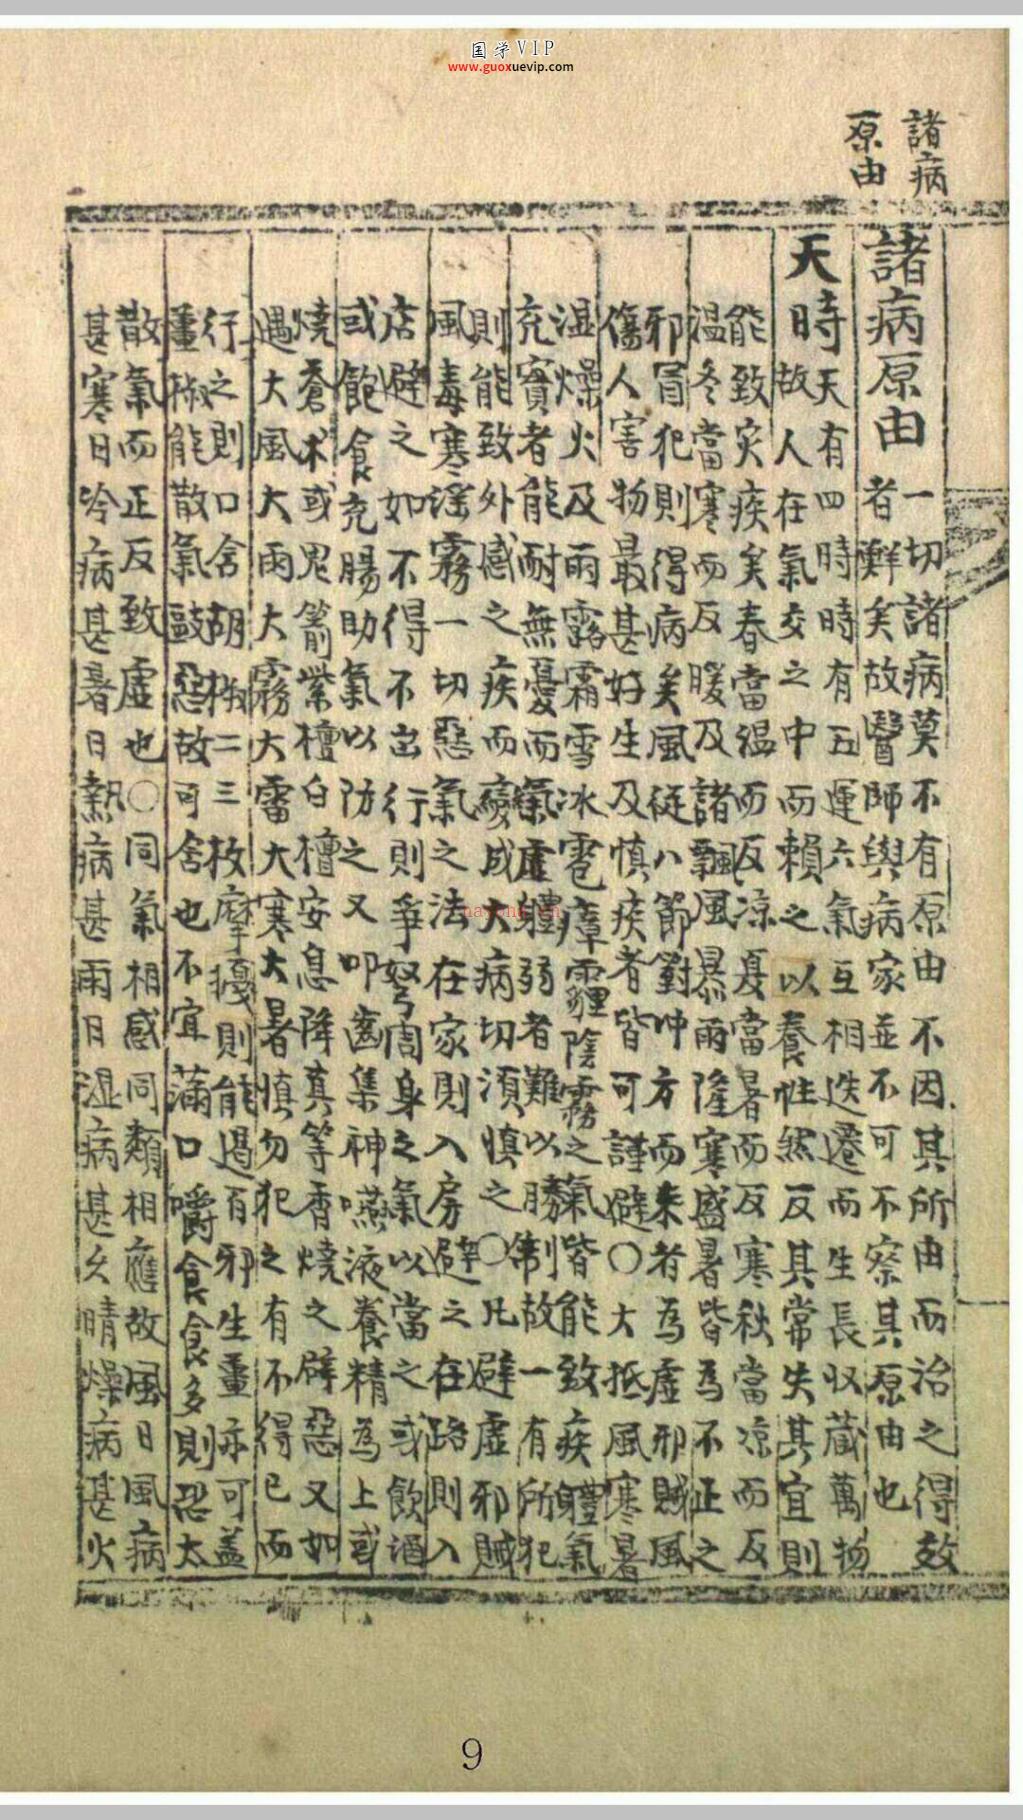 国学VIP
www.guoxuevip.com
諸病
原由
諸病原由
一切諸病莫不有原由不因其所由而治之得効
者鮮矣故醫師與病家並不可不察其原由也
天時
天有四時時有五運六氣互相迭遷而生長収蔵萬物
故人在氣交之中而賴之以養性然反其常失其宜則
能致灾疾矣春當温而反凉夏當暑而反寒秋當凉而反
温冬當寒而反暖及諸飄風暴雨隆寒盛暑皆為不正之
邪冒犯則得病矣風従八節對冲方而来者為虚邪賊風
傷人害物最甚好生及慎疾者皆可謹避〇大抵風寒暑
湿燥火及雨露霜雪冰雹瘴霾陰霧之氣皆能致疾體氣
充實者能耐無憂而氣虚體弱者難以勝制故一有所犯
則能致外感之疾而變成大病切須慎之〇凡避虚邪賊
風毒寒瑶霧一切惡氣之法在家則入房避之在路則入
店避之如不得不出行則爭努周身之氣以當之或飲酒
或飽食充腸助氣以防之又叩齒集神嚥液養精為上或
燒蒼术或鬼箭紫檀白檀安息降真等香燒之辟惡又如
遇大風大雨大霧大雷大寒大暑慎勿犯之有不得已而
行之則口含胡椒二三枚摩擾則能遏有邪生薑亦可盖
薑椒能散氣歐惡故可含也不宜滿口嚼食食多則恐太
散氣而正反致虚也〇同氣相感同類相應故風日風病
甚寒日冷病甚暑日熱病甚雨日湿病甚久晴燥病甚火
naxxnn.cn
9